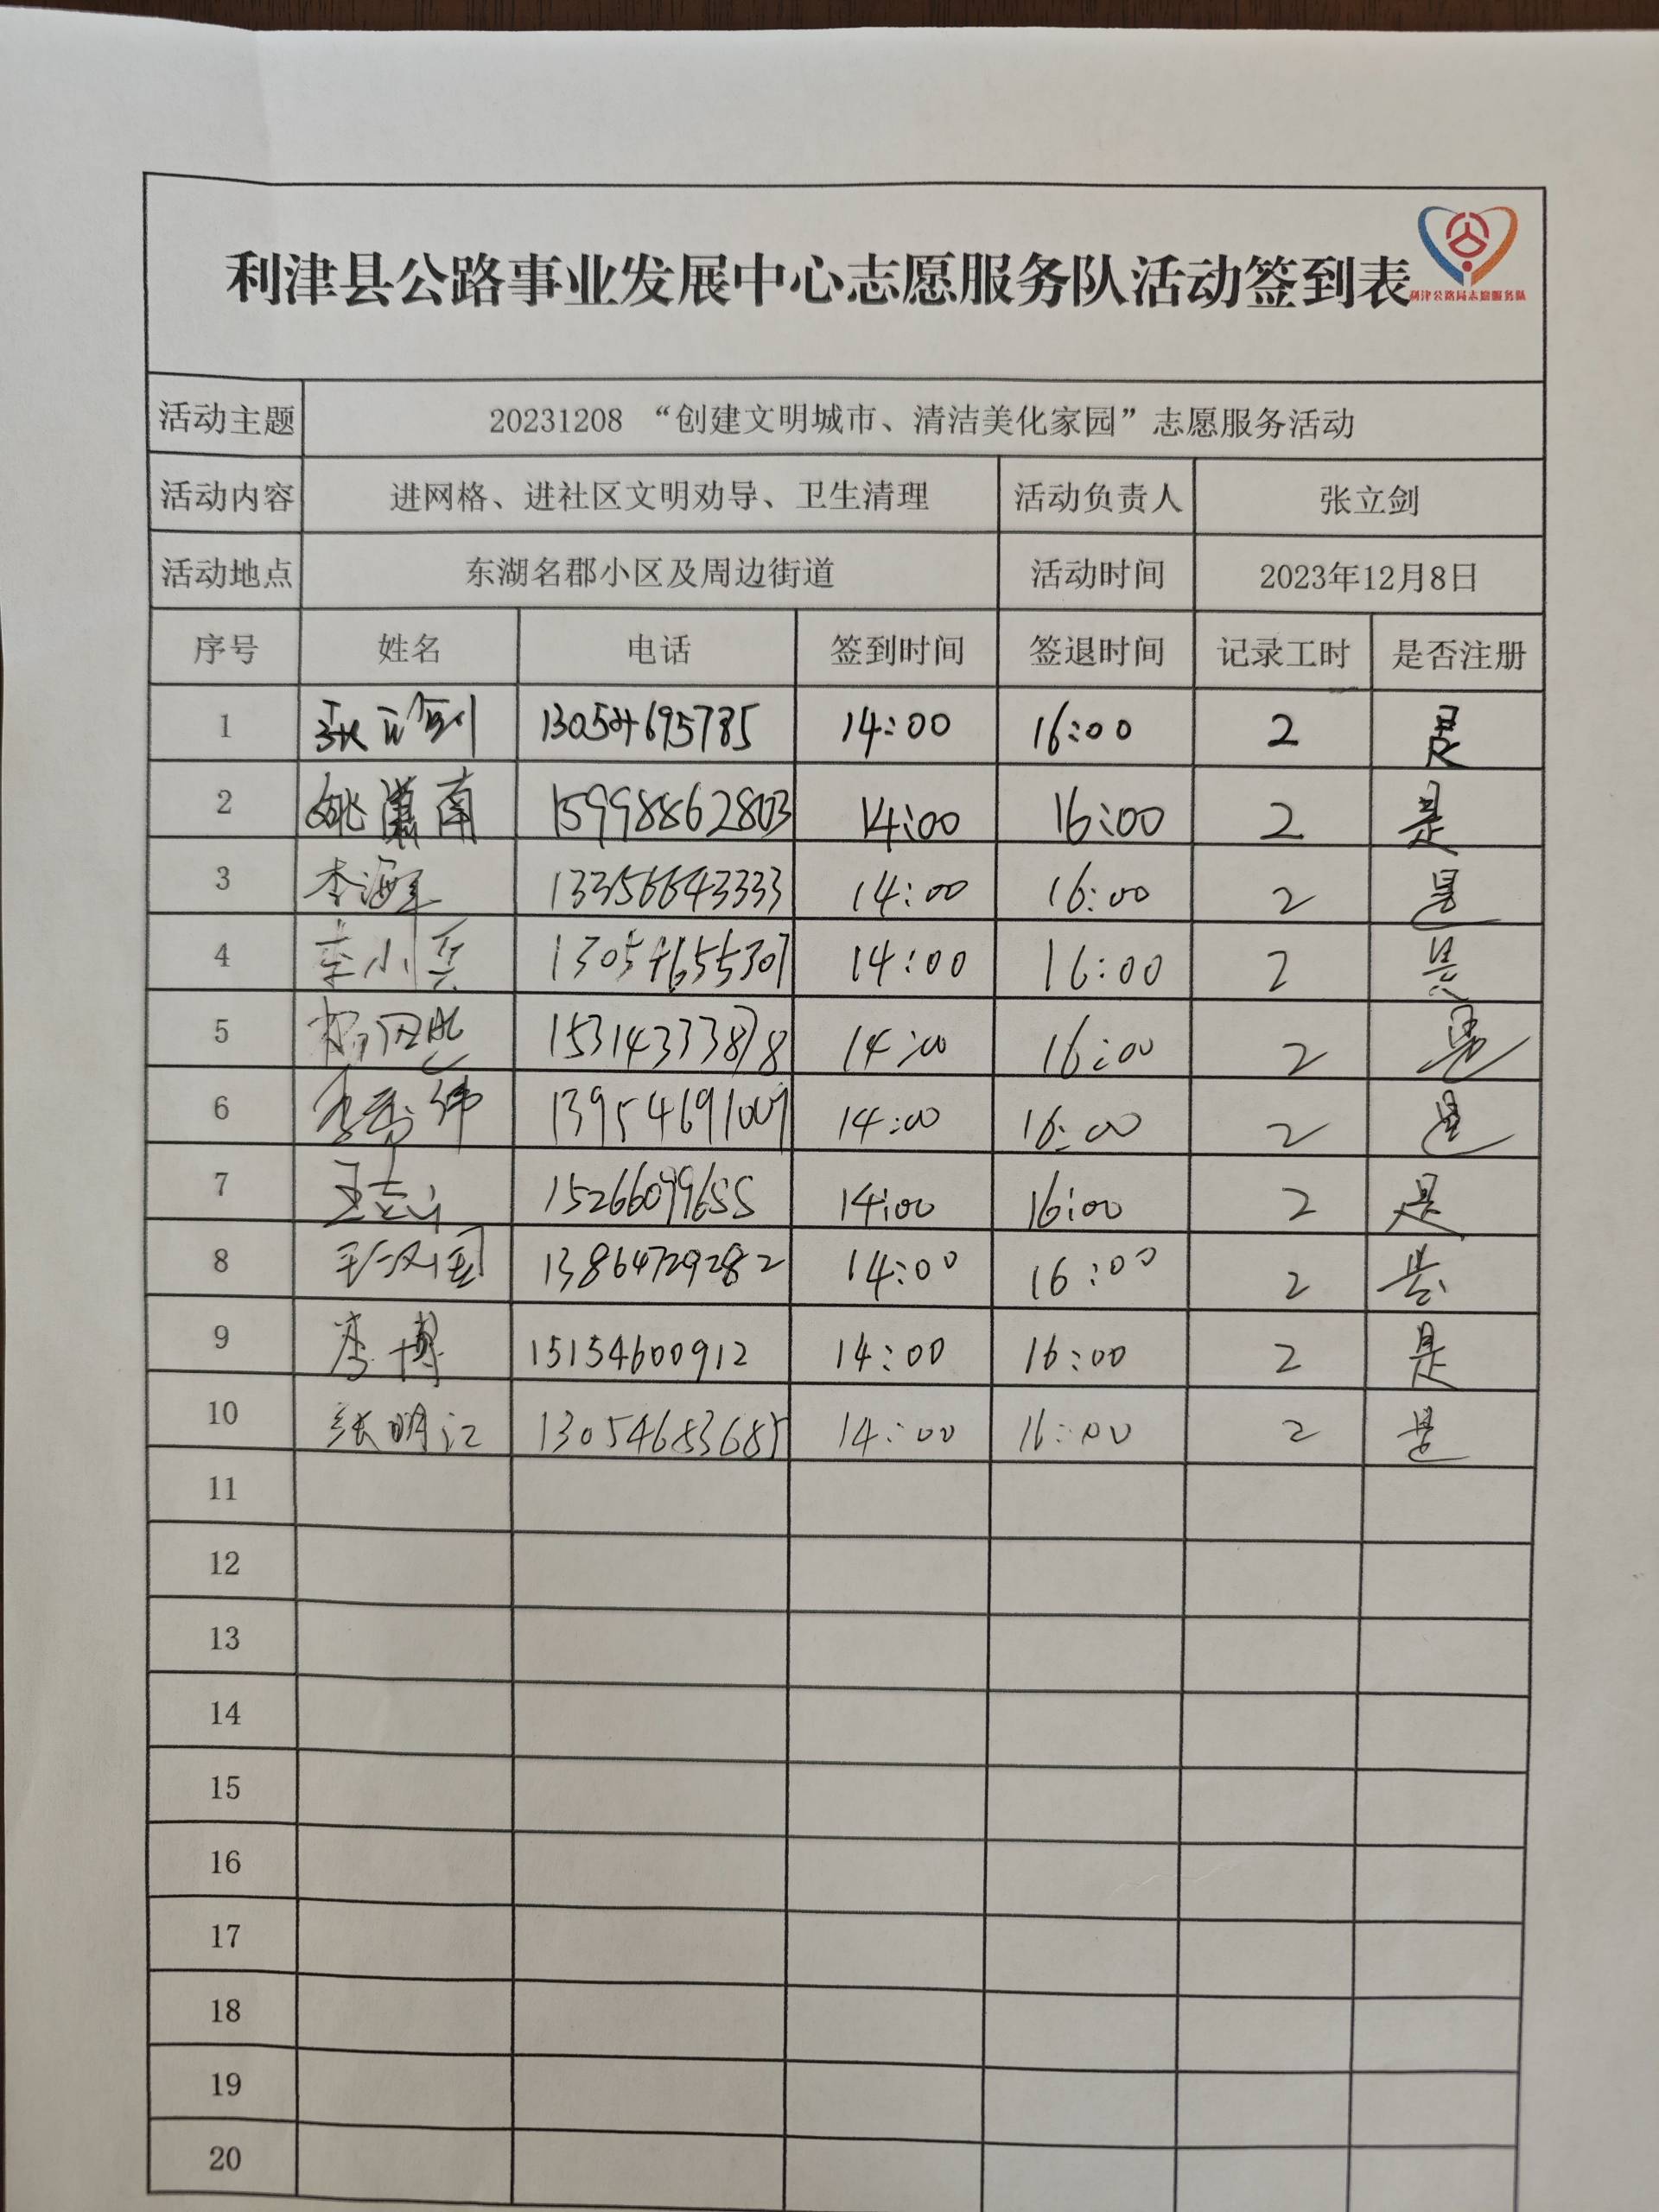 利津县公路事业发展中心志愿服务队活动签到表
利津公路局志愿服务队
活动主题 20231208 “创建文明城市、清洁美化家园”志愿服务活动
活动内容 进网格、进社区文明劝导、卫生清理 活动负责人 张立剑
活动地点 东湖名郡小区及周边街道 活动时间 2023年12月8日
序号 姓名 电话 签到时间 签退时间 记录工时 是否注册
1 张立剑 13054695785 14:00 16:00 2 是
2 姚潇南 15998862803 14:00 16:00 2 是
3 李海军 13356643333 14:00 16:00 2 是
4 李小兵 13054655307 14:00 16:00 2 是
5 15314333878 14:00 16:00 2 是
6 13954691009 14:00 16:00 2 是
7 15266099655 14:00 16:00 2 是
8 13864729282 14:00 16:00 2 是
9 李博 15154600912 14:00 16:00 2 是
10 张明江 13054683685 14:00 16:00 2 是
11
12
13
14
15
16
17
18
19
20